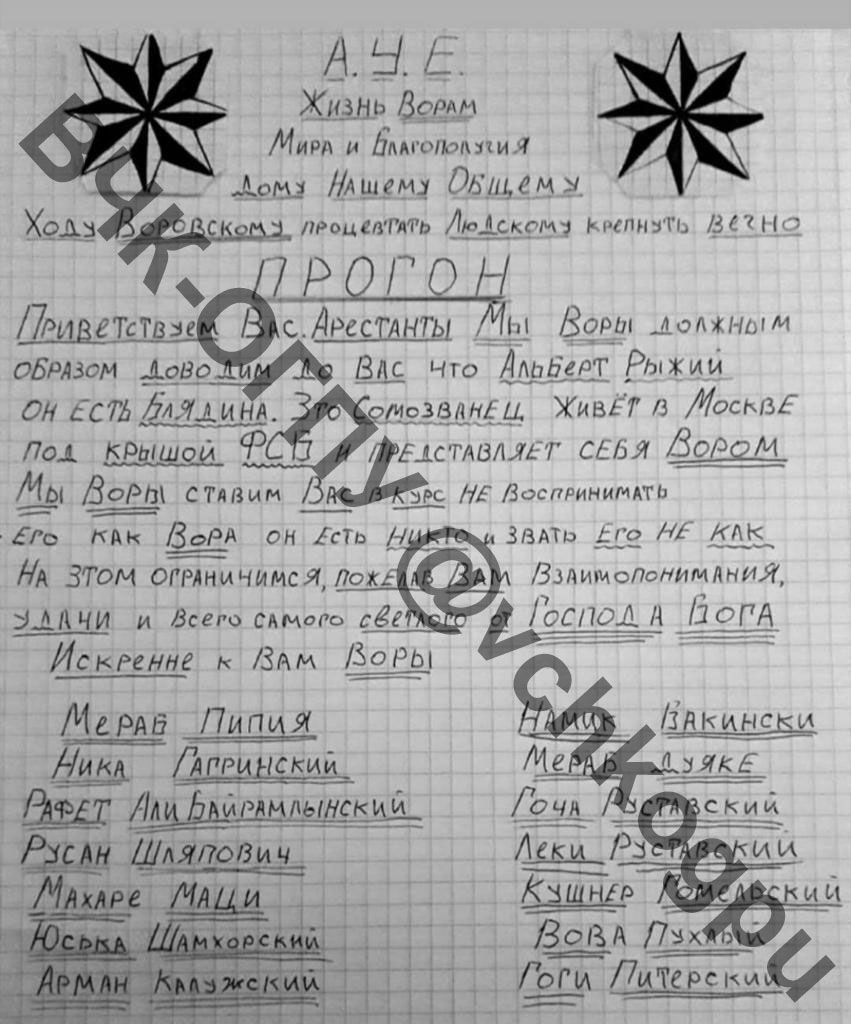 А.У.Е.
Жизнь Ворам
Мира и Благополугия
Дому Нашему Общему
Ходу Воровскому процевтать Людскому крепнуть вечно
ПРОГОН
Приветствуем Вас. Арестанты Мы Воры должным
образом доводим до вас что Альберт Рыжий
он есть Блядина. Это Сомозванец живёт в Москве
под крышой ФСБ и представляет себя Вором
Мы Воры ставим Вас в курс не воспринимать
его как Вора он есть никто и звать Его не как
На этом ограничимся, пожелав Вам Взаимопонимания,
удачи и всего самого светлого от Господа Бога
Искренне к вам Воры
Мераб Пипия
Ника Гагринский
Рафет Али Байрамлынский
Русан Шляпович
Махаре Маци
Юська Шамхорский
Арман Калужский
Намик Бакински
Мераб Дуяке
Гоча Руставский
Леки Руставский
Кушнер Гомельский
Вова Пухлый
Гоги Питерский
ВЧК-ОГПУ @vchkogpu